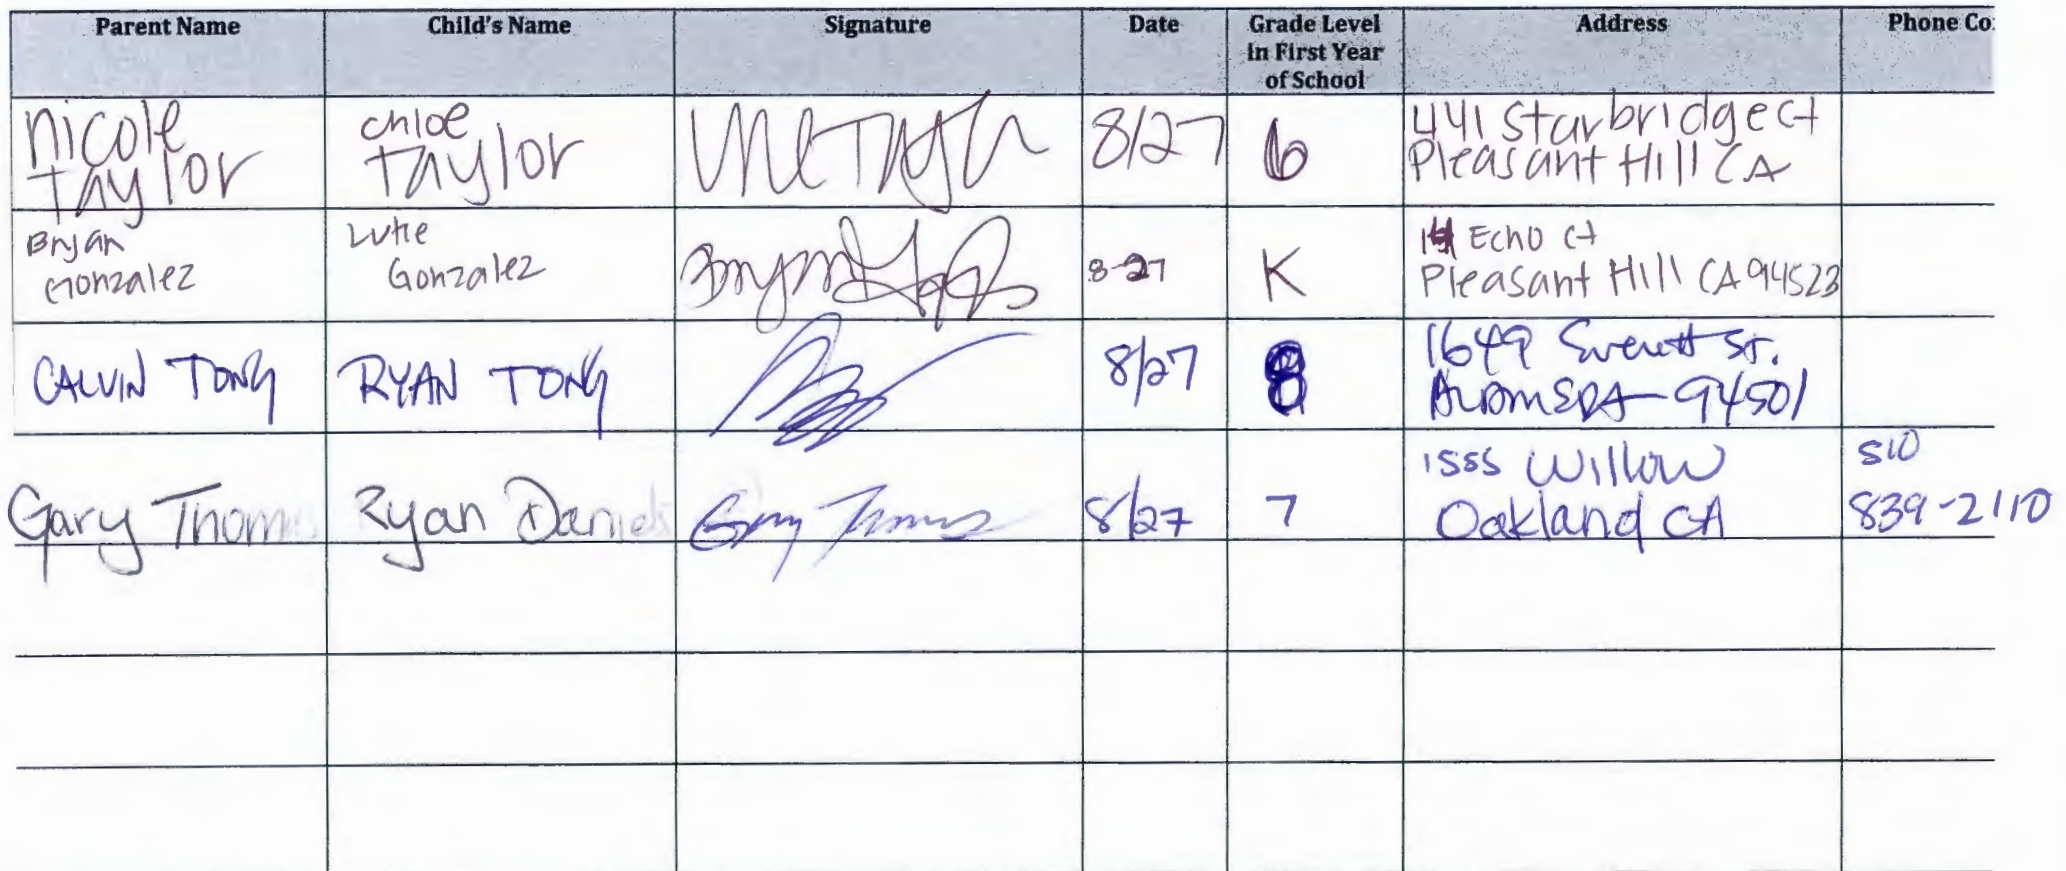 Parent Name
Child's Name
Signature
Date
Grade Level
in First Year
of School
Address
Phone Co
Nicole
Taylor
Chloe
Taylor
8/27
6
441 Starbridge Ct
Pleasant Hill CA
Bryan
Gonzalez
Luke
Gonzalez
8-27
K
Echo Ct
Pleasant Hill CA 94523
CALVIN TONG
RYAN TONG
8/27
8
1649 Everett St.
ALAMEDA 94501
Gary Thomas
Ryan Daniels
Gary Thomas
8/27
7
1555 Willow
Oakland CA
510
839-2110